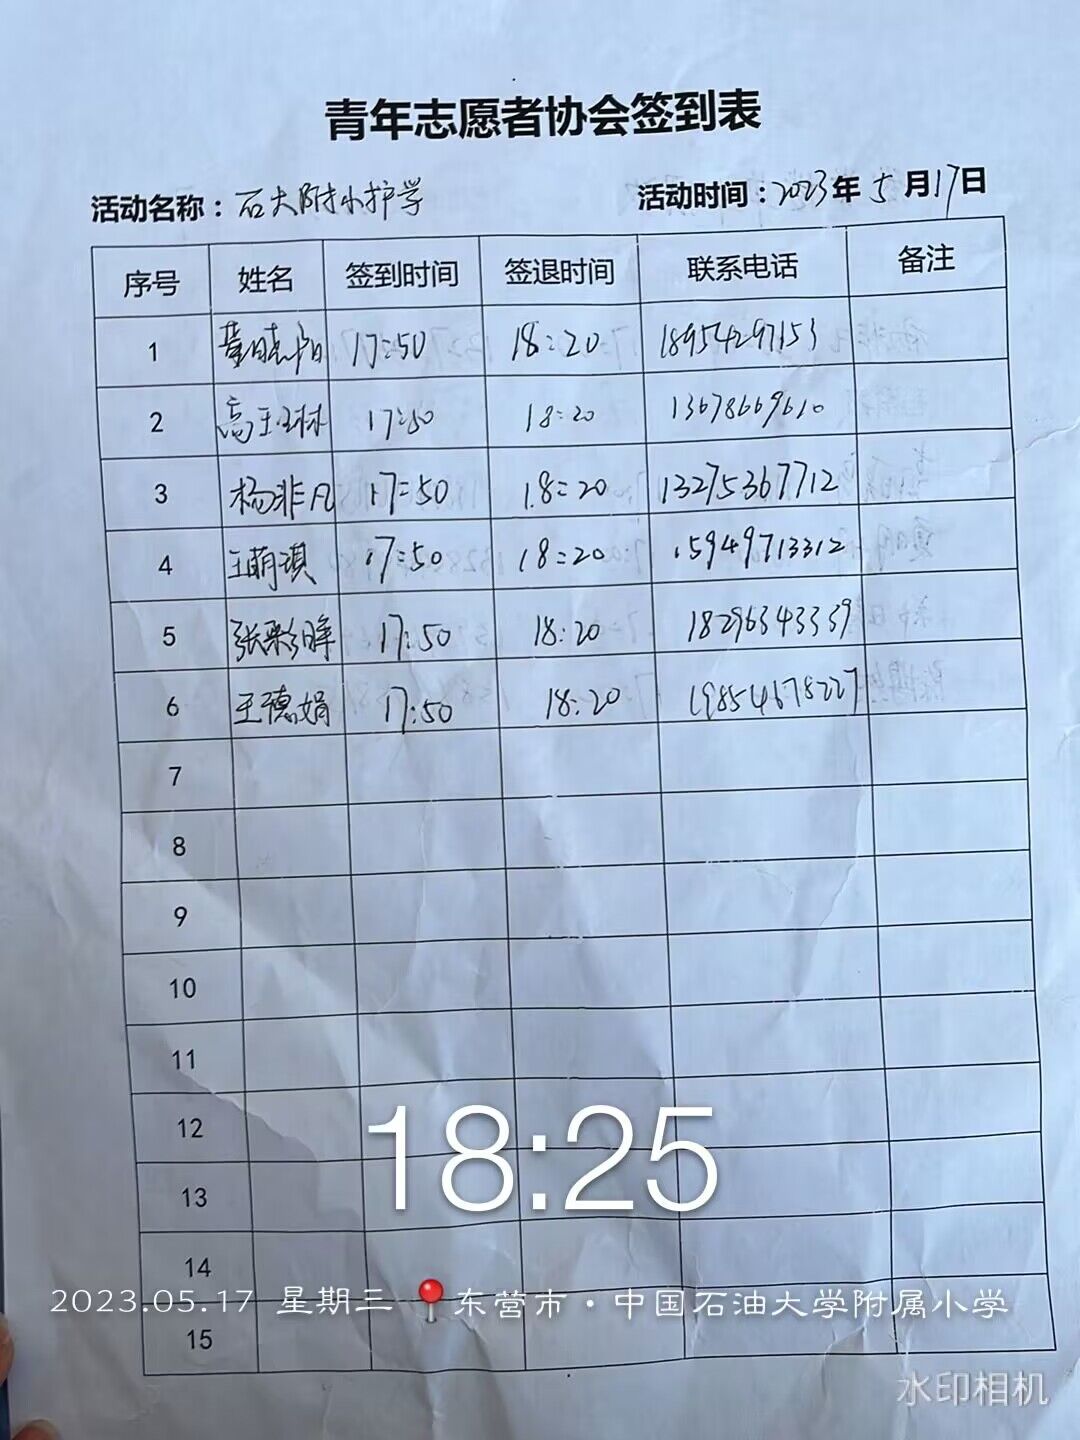 青年志愿者协会签到表
活动名称：石大附小护学 活动时间：2023年5月17日
序号 姓名 签到时间 签退时间 联系电话 备注
1 黄晓阳 17:50 18:20 18954297153
2 高玉林 17:50 18:20 13678669610
3 杨非凡 17:50 18:20 13275367712
4 王萌琪 17:50 18:20 15949713312
5 张彩晖 17:50 18:20 18296343339
6 王德娟 17:50 18:20 19854678227
7
8
9
10
11
12
13
14
15
18:25
2023.05.17 星期三 东营市·中国石油大学附属小学
水印相机